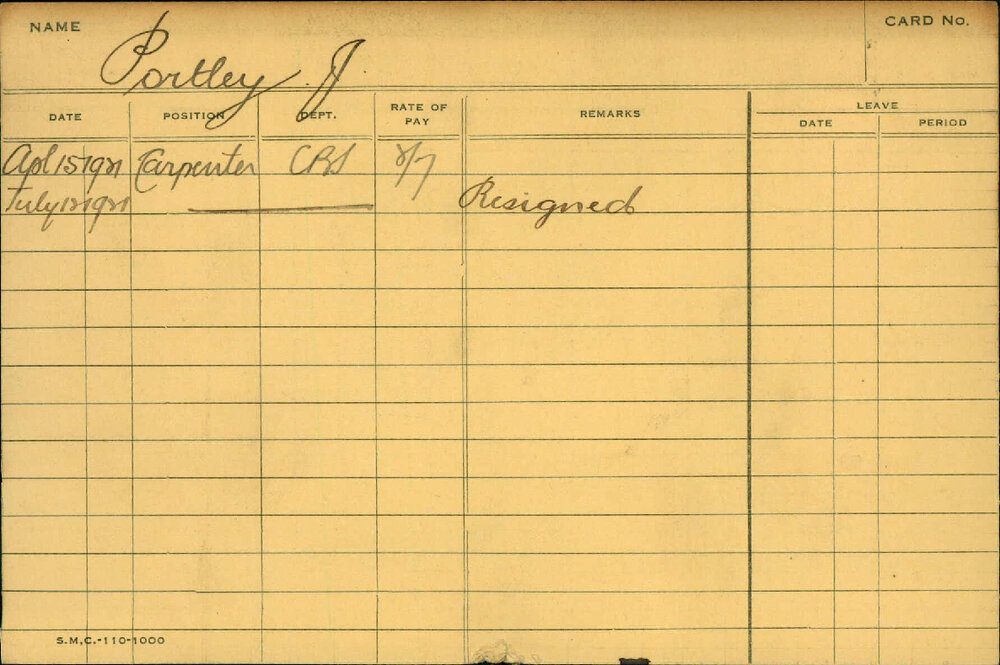 NAME Portley J CARD No.
DATE POSITION DEPT. RATE OF PAY REMARKS LEAVE
DATE PERIOD
Apl 15 1921 Carpenter CBS
July 12 1921 Resigned
S.M.C.-110-1000